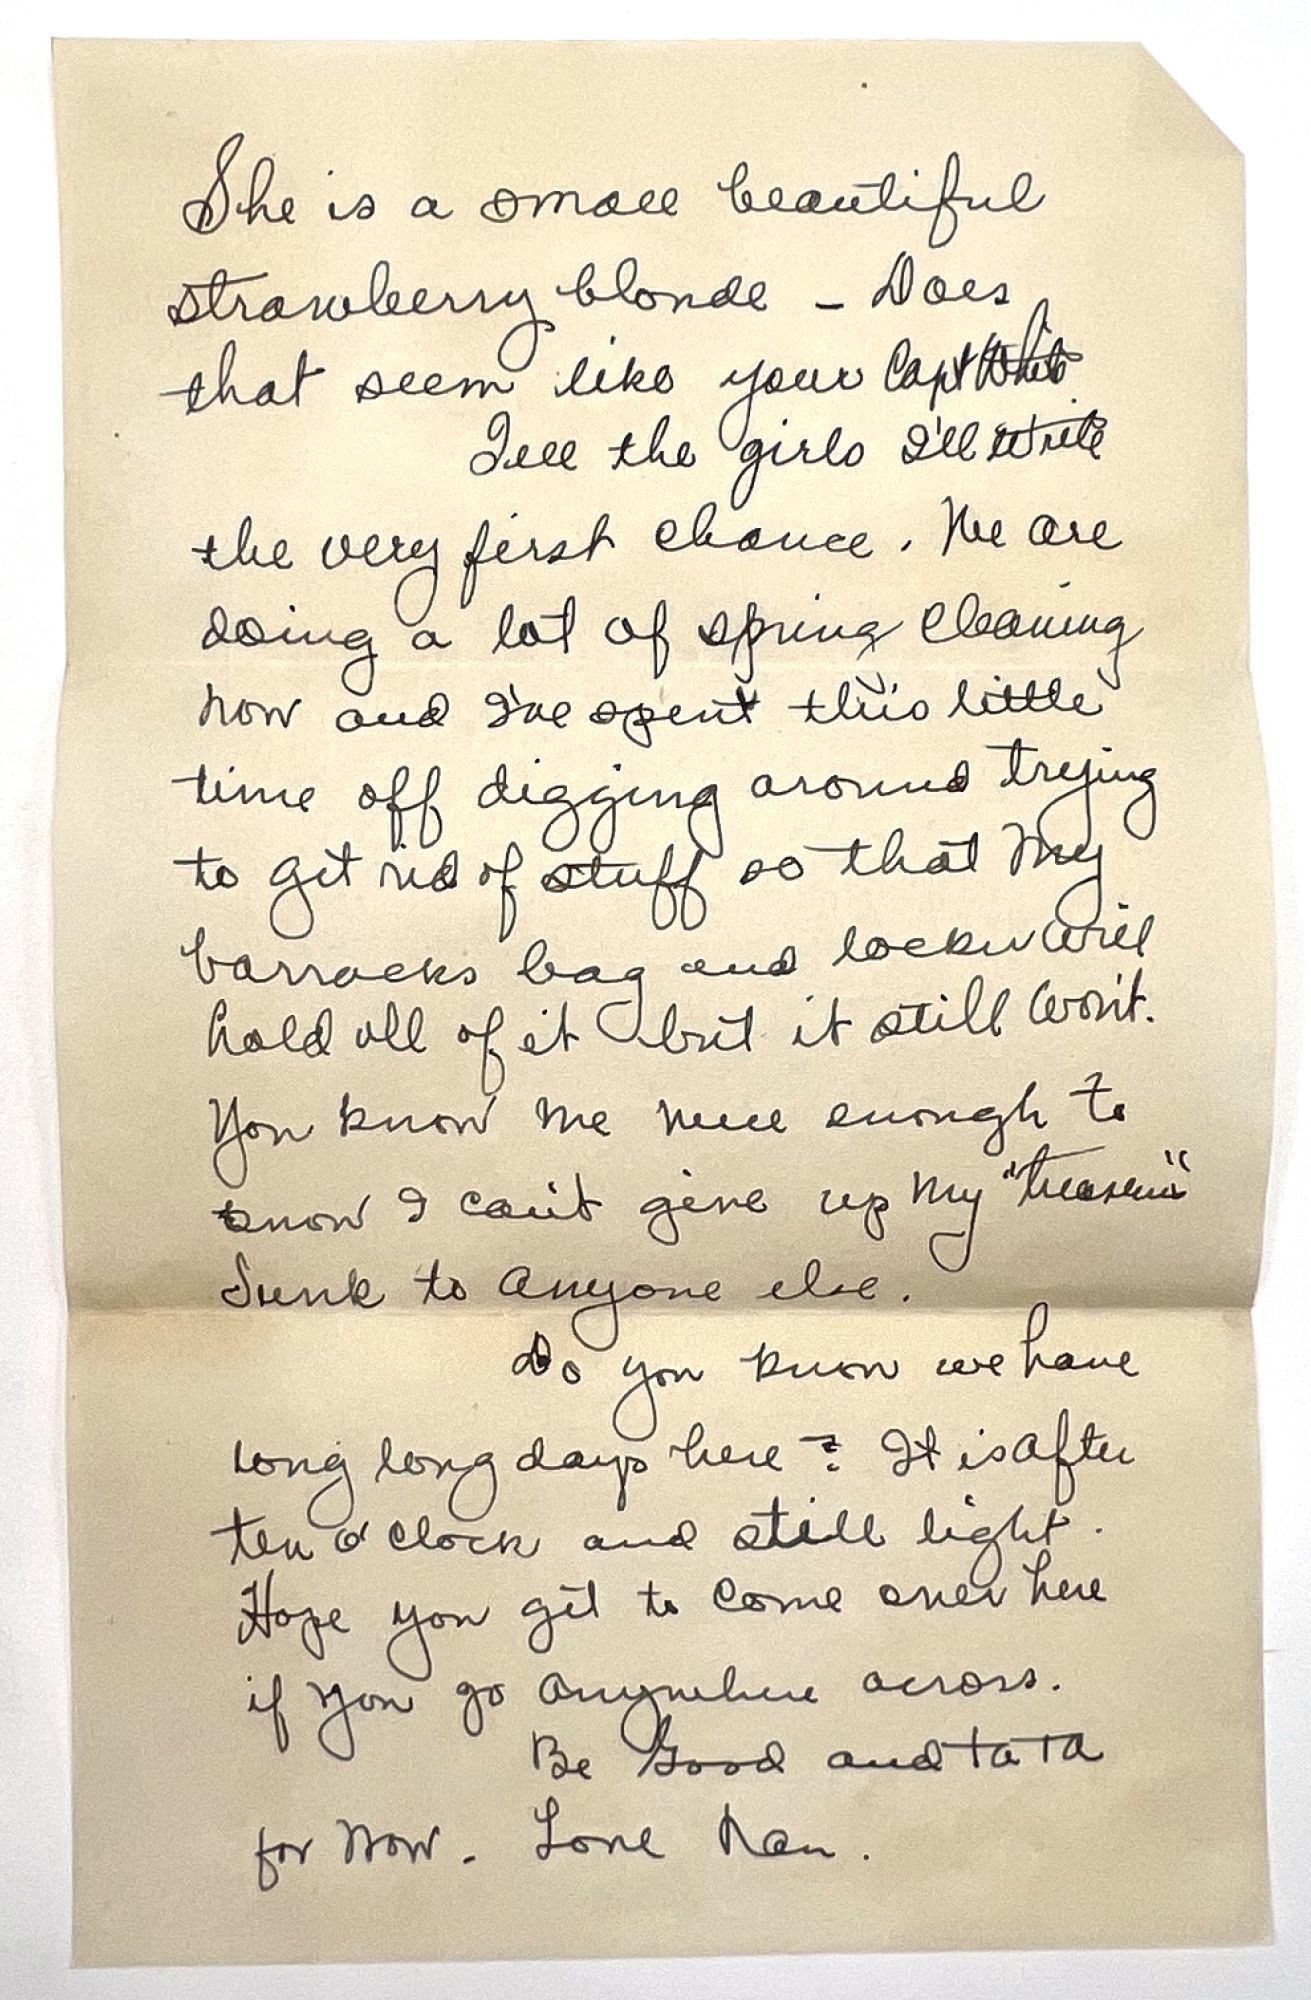 She is a small beautiful
strawberry blonde - Does
that seem like your Capt White
Tell the girls I'll write
the very first chance. We are
doing a lot of spring cleaning
now and I've spent this little
time off digging around trying
to get rid of stuff so that my
barracks bag and locker will
hold all of it but it still won't.
You know me well enough to
know I can't give up my "treasure"
Junk to anyone else.
Do you know we have
long long days here? It is after
ten o'clock and still light.
Hope you get to come over here
if you go anywhere across.
Be Good and ta ta
for now. Love Nan.